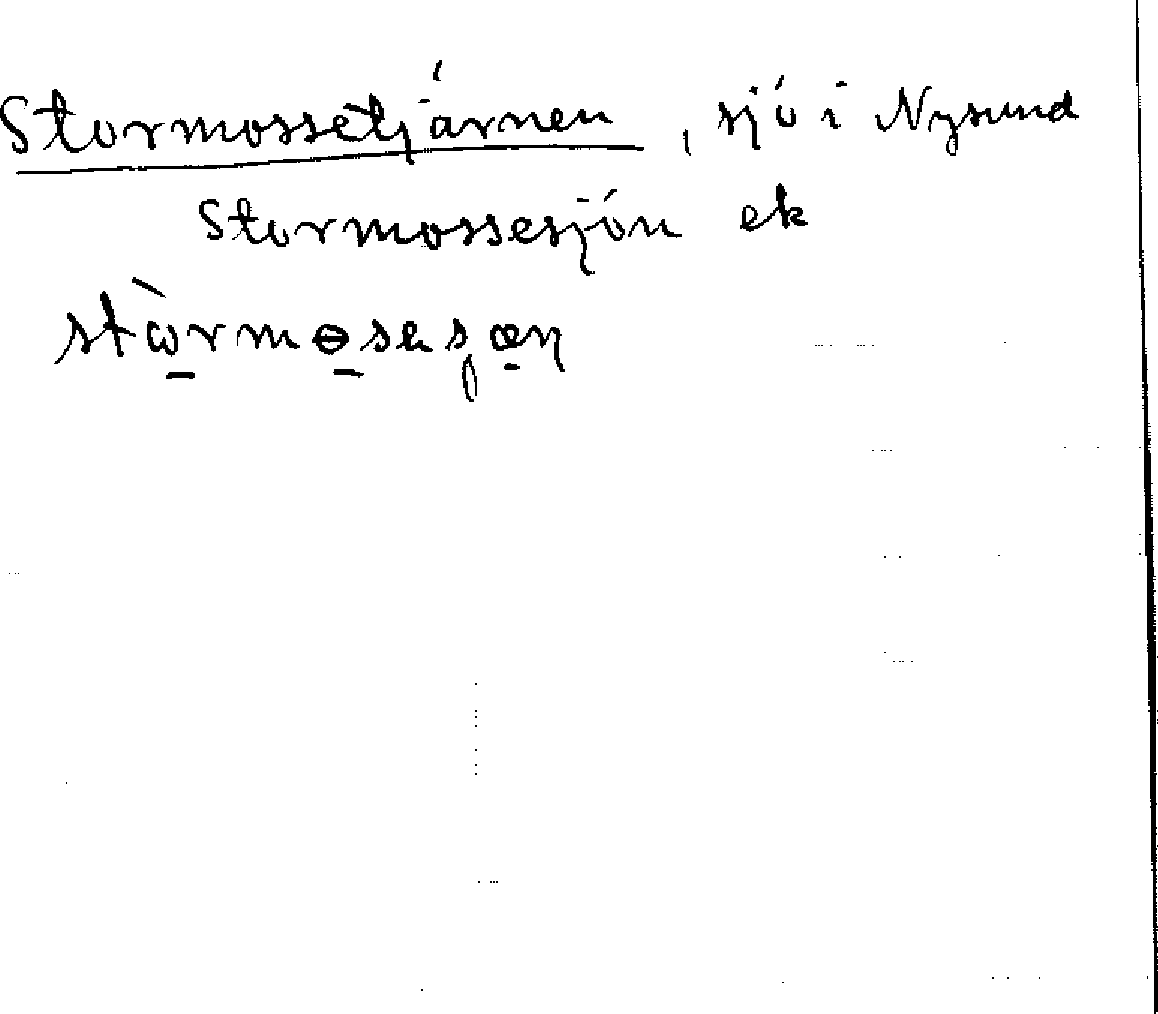 Stormossetjärnen, sjö i Nysund
Stormossesjön ek